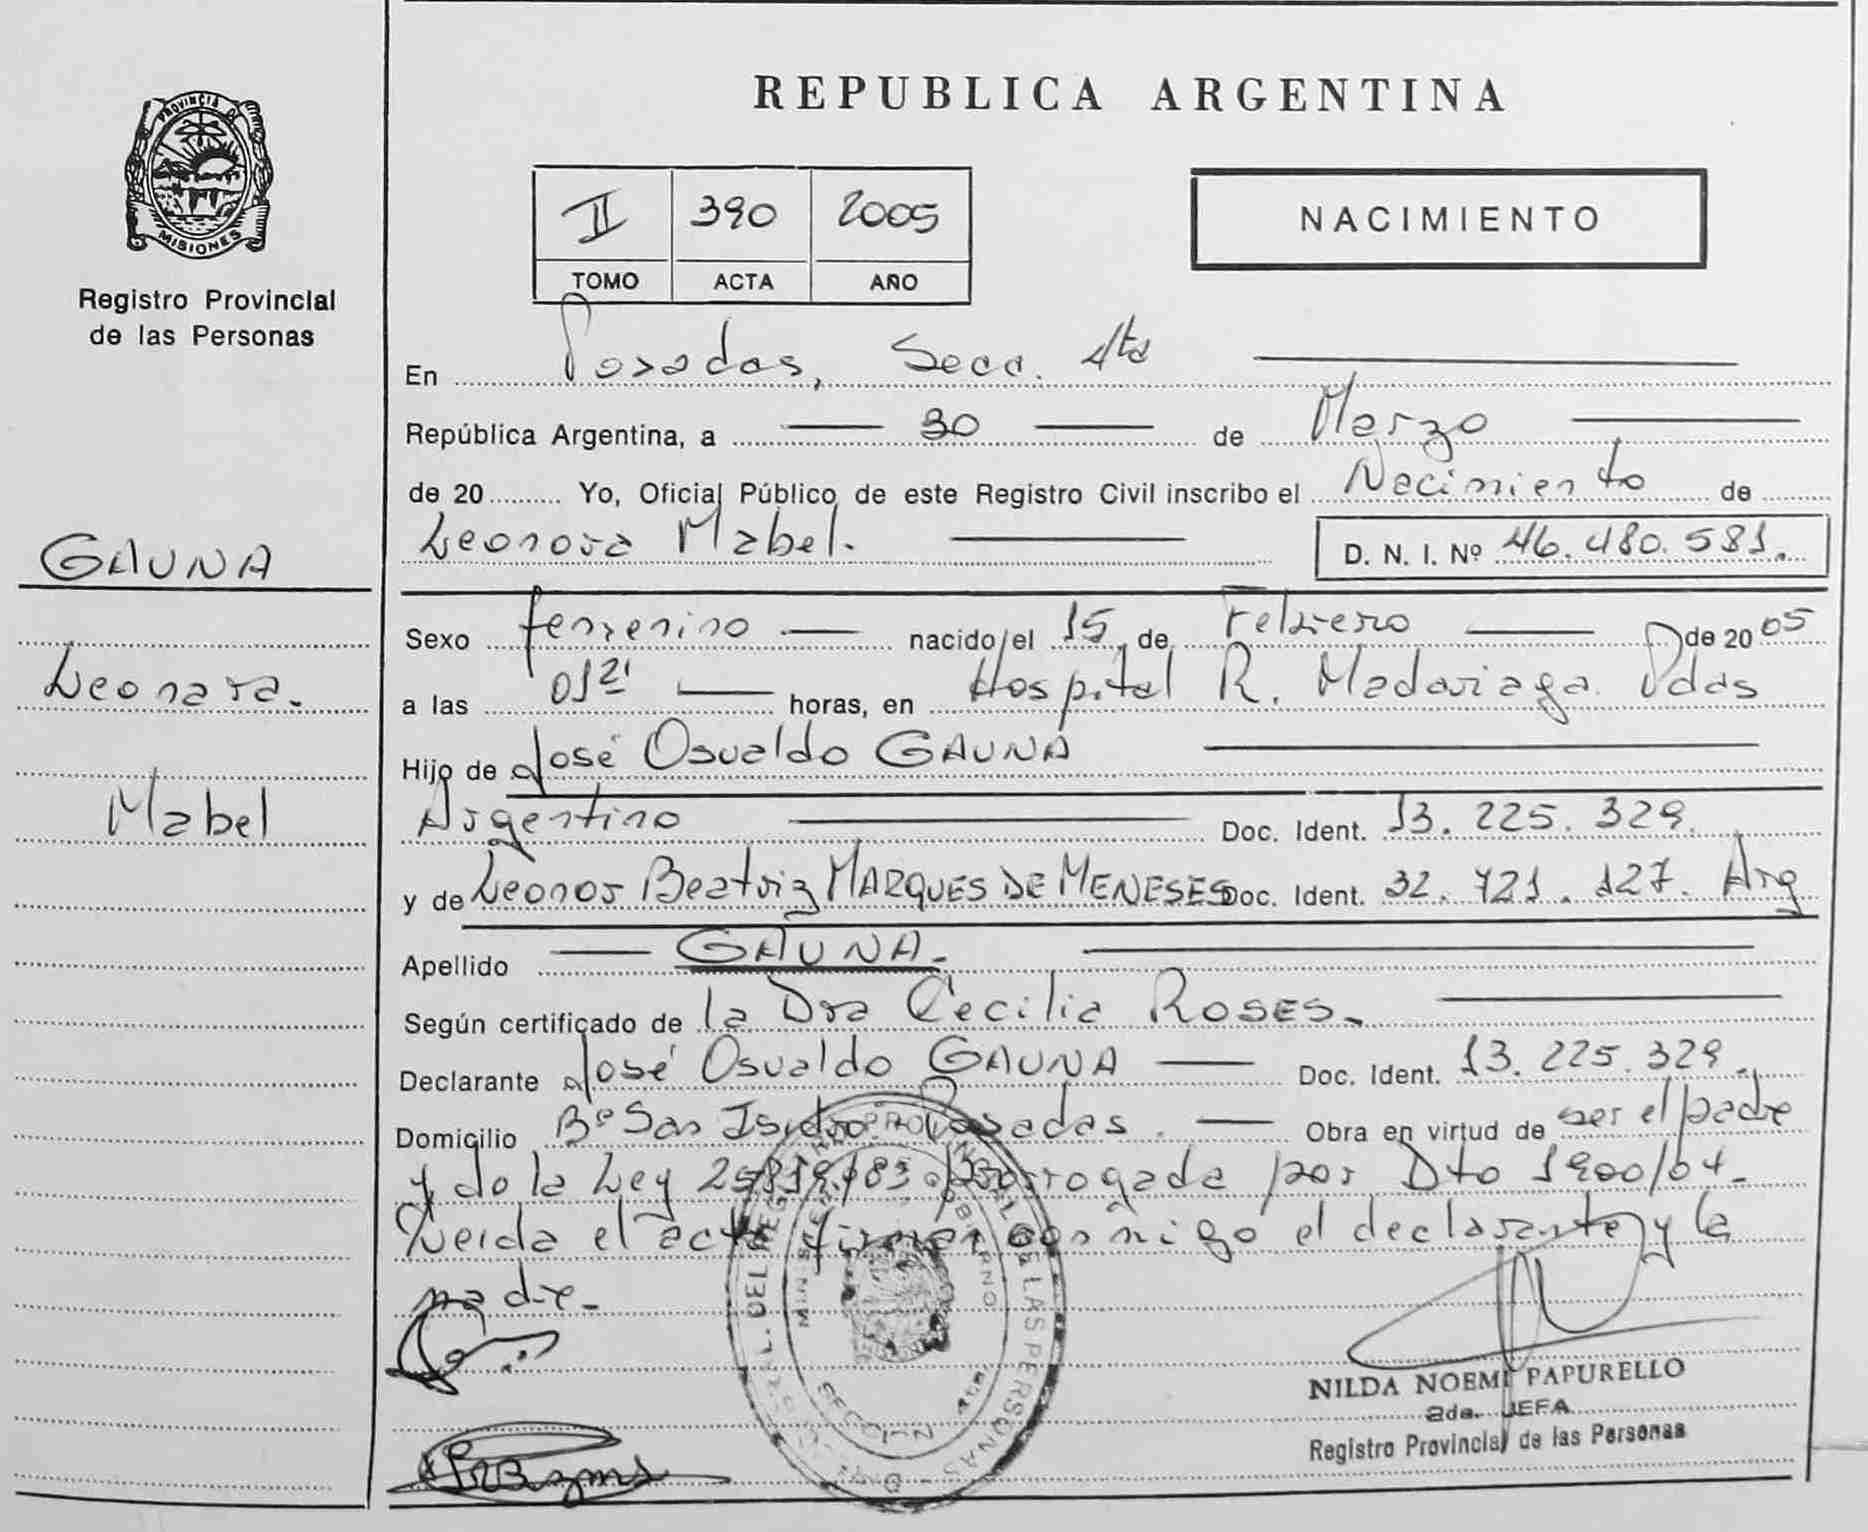 PROVINCIA DE
MISIONES
Registro Provincial
de las Personas
GAUNA
Leonora.
Mabel
REPUBLICA ARGENTINA
II 390 2005
TOMO ACTA AÑO
NACIMIENTO
En Posadas, Secc. 4ta
República Argentina, a 30 de Marzo
de 20 Yo, Oficial Público de este Registro Civil inscribo el Nacimiento de
Leonora Mabel. D. N. I. Nº 46.480.581.
Sexo femenino nacido el 15 de Febrero de 2005
a las 01 21 horas, en Hospital R. Madariaga Pdas
Hijo de José Osvaldo GAUNA
Argentino Doc. Ident. 13.225.329.
y de Leonor Beatriz MARQUES DE MENESES Doc. Ident. 32.721.127. Arg
Apellido GAUNA.
Según certificado de la Dra Cecilia ROSES.
Declarante José Osvaldo GAUNA Doc. Ident. 13.225.329.
Domicilio Bº San Isidro. Posadas. Obra en virtud de ser el padre
y de la Ley 25819/03 prorrogada por Dto 1900/04.
Leida el acta firman conmigo el declarante y la
madre.
NILDA NOEMI PAPURELLO
2da. JEFA
Registro Provincial de las Personas